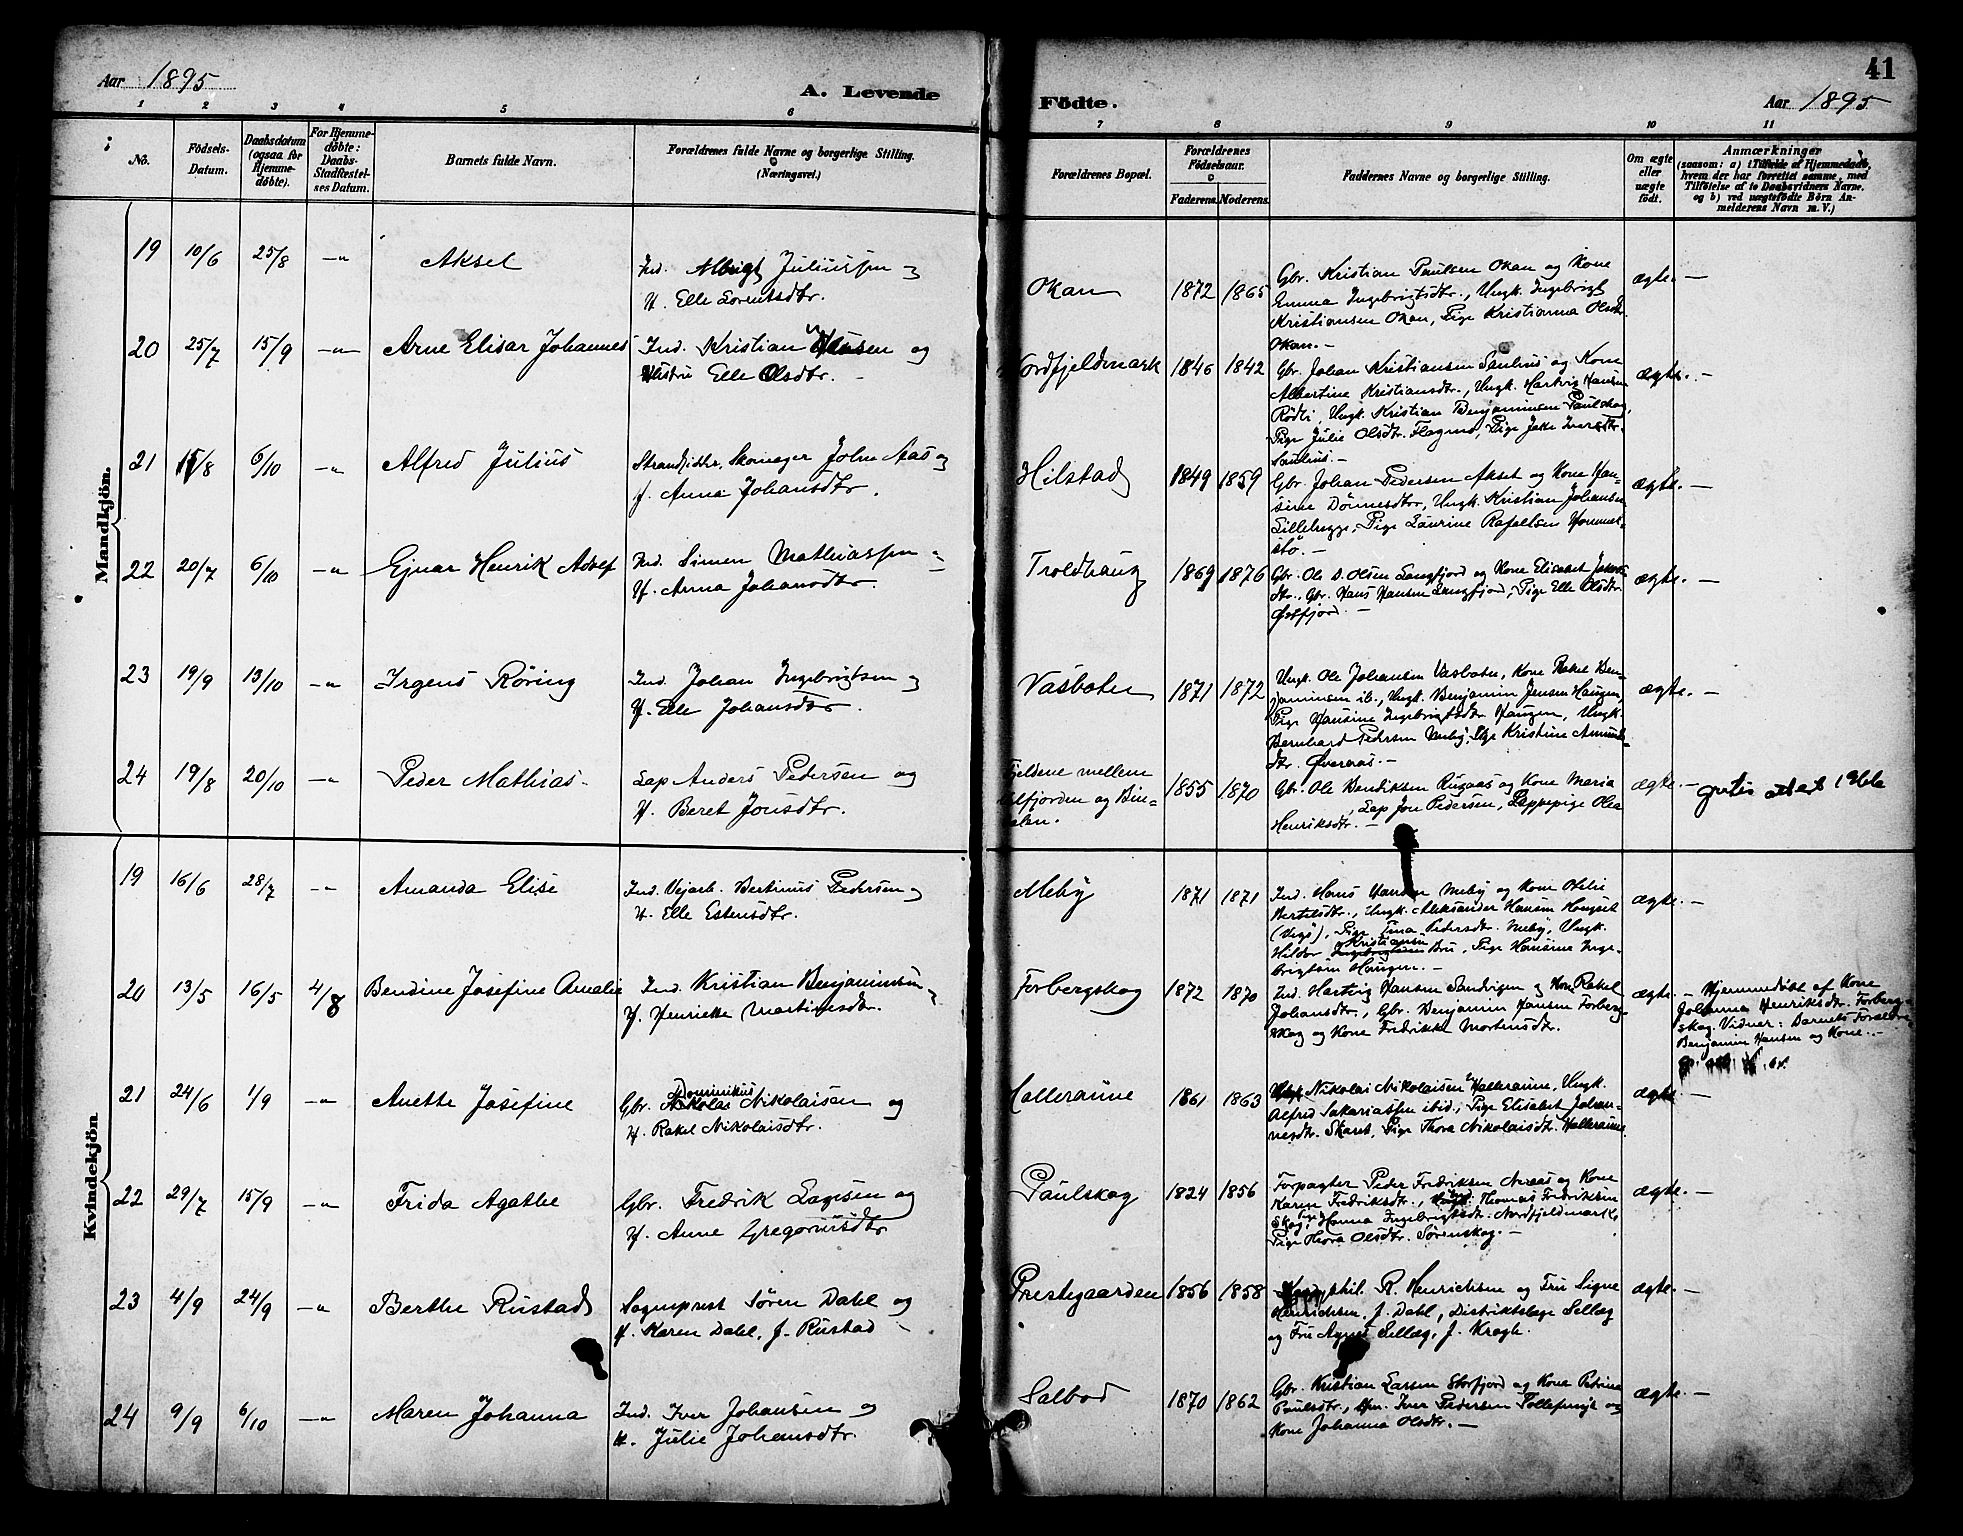 Aar 1895
A. Levende
Födte.
Aar 1895
41
1 2 3 4 5 6 7 8 9 10 11
No.
Födsels-
Datum.
Daabsdatum
(ogsaa for
Hjemme-
döbte).
For Hjemme-
döbte:
Daabs-
Stadfæstel-
ses Datum.
Barnets fulde Navn.
Forældrenes fulde Navne og borgerlige Stilling.
(Næringsvei.)
Forældrenes Bopæl.
Forældrenes
Födselsaar.
Faderens. Moderens.
Faddernes Navne og borgerlige Stilling.
Om ægte
eller
uægte
födt.
Anmærkninger
(saasom: a) i Tilfælde af Hjemmedaab,
hvem der har forrettet samme, med
Tilföielse af to Daabsvidners Navne.
og b) ved uægtefödte Börn An-
melderens Navn m. V.)
Mandkjön.
19 10/6 25/8 —"— Aksel
Ind. Albrigt Juliussen og
H. Elle Lorentsdtr.
Okan 1872 1865
Gbr. Kristian Paulsen Okan og Kone
Emma Ingebrigtsdtr., Ungk. Ingebrigt
Kristiansen Okan, Pige Kristianna Olsdtr.
Okan.—
ægte. —
20 25/7 15/9 —"— Arne Elisar Johannes
Ind. Kristian Hansen og
Hustru Elle Olsdtr. —
Nordfjeldmark 1846 1842
Gbr. Johan Kristiansen Saulhus og Kone
Albertine Kristiansdtr., Ungk. Hartvig Hansen
Rödli, Ungk. Kristian Benjaminsen Paulskog,
Pige Julie Olsdtr. Flagmo, Pige Jakke Iversdtr.
Saulhus.—
ægte. —
21 15/8 6/10 —"— Alfred Julius
Strandsidder, Skomager John Aas og
H. Anna Johansdtr.
Hilstad 1849 1859
Gbr. Johan Pedersen Akset og Kone Han-
sine Dönnesdtr, Ungk. Kristian Johansen
Lillebugge, Pige Laurine Rafaelsen Hommel-
stö.—
ægte. —
22 20/7 6/10 —"— Ejnar Henrik Adolf
Ind. Simen Mathiassen og
H. Anna Johansdtr.
Troldhaug 1869 1876
Gbr. Ole D. Olsen Langfjord og Kone Elisabet Jakobs-
dtr., Gbr. Hans Hansen Langfjord, Pige Elle Olsdtr.
Østfjord. —
ægte. —
23 19/9 13/10 —"— Irgens Röring
Ind. Johan Ingebrigtsen og
H. Elle Johansdtr.
Vasboten 1871 1872
Ungk. Ole Johansen Vasboten, Kone Rakel Ben-
jaminsen ib., Ungk. Benjamin Jensen Haugen,
Pige Hansine Ingebrigtsdtr. Haugen, Ungk.
Bernhard Pedersen Meby, Pige Kristine Amund-
dtr. Øveraas.—
ægte. —
24 19/8 20/10 —"— Peder Mathias.
Lap Anders Pedersen og
H. Beret Jonsdtr.
Fjeldene mellem
fjorden og Bin-
dalen. 1855 1870
Gbr. Ole Bendiksen Rugaas og Kone Maria
, Lap Jon Pedersen, Lappepige Olea
Henriksdtr. —
ægte. —
Kvindekjön
19 16/6 28/7 —"— Amanda Elise
Ind. Vejarb. Bertinus Pedersen og
H. Elle Estensdtr.
Meby 1871 1871
Ind. Hans Hansen Meby og Kone Otelie
Bertelsdtr., Ungk. Aleksander Hansen Hongset
(Vegö), Pige Tina Pedersdtr. Meby, Ungk.
Hildor Kristiansen Bru, Pige Hansine Inge-
brigtsen Haugen. —
ægte. —
20 13/5 16/5 4/8 Bendine Josefine Amalie
Ind. Kristian Benjaminsen og
H. Henrikke Martinusdtr.
Forbergskog 1872 1870
Ind. Hartvig Hansen Sandvigen og Kone Rakel
Johansdtr., Gbr. Benjamin Hansen Forberg-
skog og Kone Fredrikke Mortensdtr.
ægte.
— Hjemmedöbt af Kone
Johanna Henriksdtr. Forberg-
skog. Vidner: Barnets Forældre,
Benjamin Hansen og Kone.—
21 24/6 1/9 —"— Anette Josefine
Gbr. Dominikus Nikolaisen og
H. Rakel Nikolaisdtr.
Halleraune 1861 1863
Ungk. Nikolai Nikolaisen Halleraune, Ungk.
Alfred Sakariassen ibid., Pige Elisabet Johan-
nesdtr. Skaret, Pige Thora Nikolaisdtr. Halleraune.
ægte. —
22 29/7 15/9 —"— Frida Agathe
Gbr. Fredrik Larsen og
H. Anne Gregoriusdtr
Paulskog 1824 1856
Forpagter Peder Fredriksen Aunes og Kone
Karen Fredriksdtr., Ungk. Thomas Fredriksen
Skog, Pige Hanna Ingebrigtsdtr. Nordfjeldmark,
Pige Thora Olsdtr. Sörenskog. —
ægte. —
23 4/9 24/9 —"— Berthe Rustad
Sogneprest Sören Dahl og
H. Karen Dahl, f. Rustad —
Prestegaarden 1856 1858
Kand. phil. R. Henrichsen og Fru Signe
Henrichsen, f. Dahl, Distriktslæge Sellæg
og Fru Agnes Sellæg, f. Kragh.
ægte. —
24 9/9 6/10 —"— Maren Johanna
Ind. Iver Johansen og
H. Julie Johansdtr.
Salbod 1870 1862
Gbr. Kristian Larsen Storfjord og Kone Petrine
Paulsdtr., Iver Pedersen Tollefsvik og
Kone Johanna Olsdtr. —
ægte. —